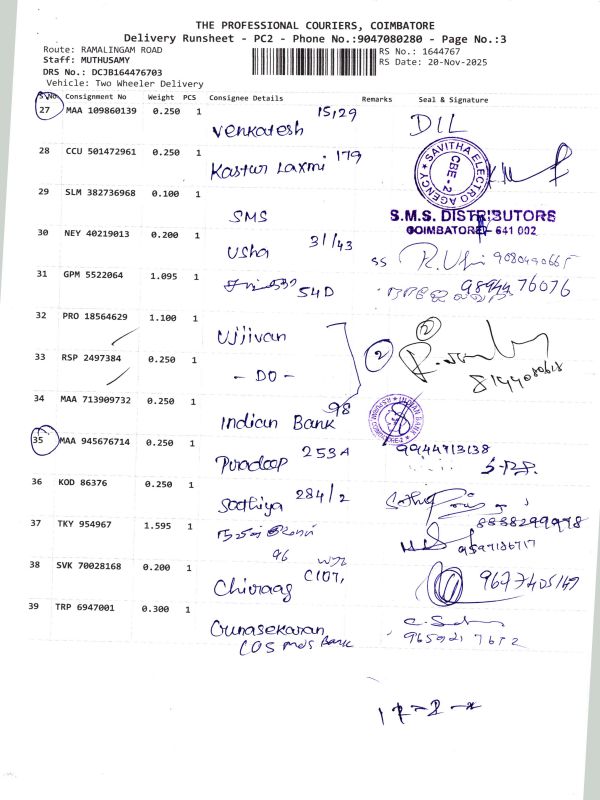 THE PROFESSIONAL COURIERS, COIMBATORE
Delivery Runsheet - PC2 - Phone No.:9047080280 - Page No.:3
Route: RAMALINGAM ROAD
RS No.: 1644767
Staff: MUTHUSAMY
RS Date: 20-Nov-2025
DRS No.: DCJB164476703
Vehicle: Two Wheeler Delivery
S.No. Consignment No Weight PCS Consignee Details Remarks Seal & Signature
27 MAA 109860139 0.250 1 Venkatesh 15,29 DIL
28 CCU 501472961 0.250 1 Kastur Laxmi 179
SAVITHA ELECTRO AGENCY CBE - 2
29 SLM 382736968 0.100 1 SMS
S.M.S. DISTRIBUTORS
COIMBATORE - 641 002
30 NEY 40219013 0.200 1 Usha 31/43 SS 9080490665
31 GPM 5522064 1.095 1 54D 9894476076
32 PRO 18564629 1.100 1 Ujjivan 2 2
33 RSP 2497384 0.250 1 - DO - 8144080618
34 MAA 713909732 0.250 1 Indian Bank 98
INDIAN BANK
35 MAA 945676714 0.250 1 Pradeep 253A 9944713138
36 KOD 86376 0.250 1 Sathiya 284/2
37 TKY 954967 1.595 1 96 8838299978
38 SVK 70028168 0.200 1 Chiraag C107,
39 TRP 6947001 0.300 1 Gunasekaran
COS mds Bank
17-2-